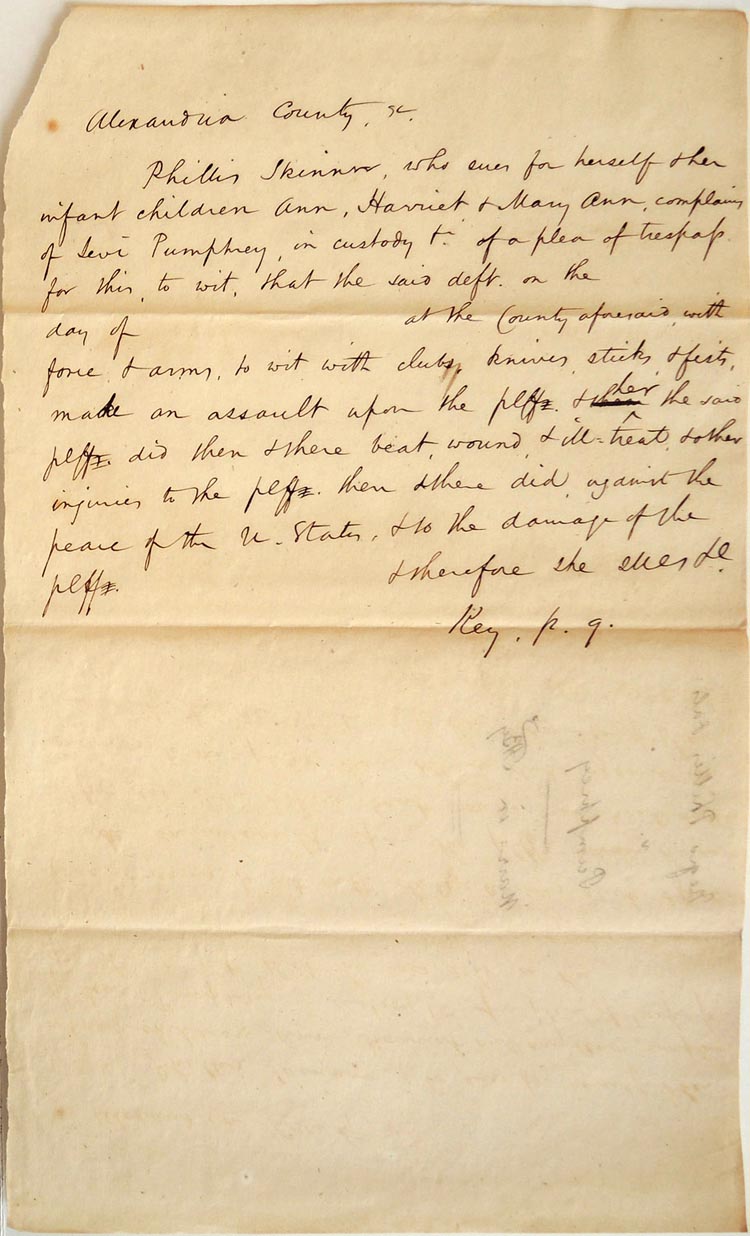 Alexandria County, sc.
Phillis Skinner, who sues for herself & her
infant children Ann, Harriet & Mary Ann, complains
of Levi Pumphrey, in custody &c. of a plea of trespass.
for this, to wit, that the said deft. on the
day of at the County aforesaid, with
force & arms, to wit with clubs, knives, sticks & fists,
made an assault upon the plff. & her the said
plff. did then & there beat, wound, & ill-treat, & other
injuries to the plff. then & there did, against the
peace of the U. States, & to the damage of the
plff. & therefore she sues &c.
Key, p. q.